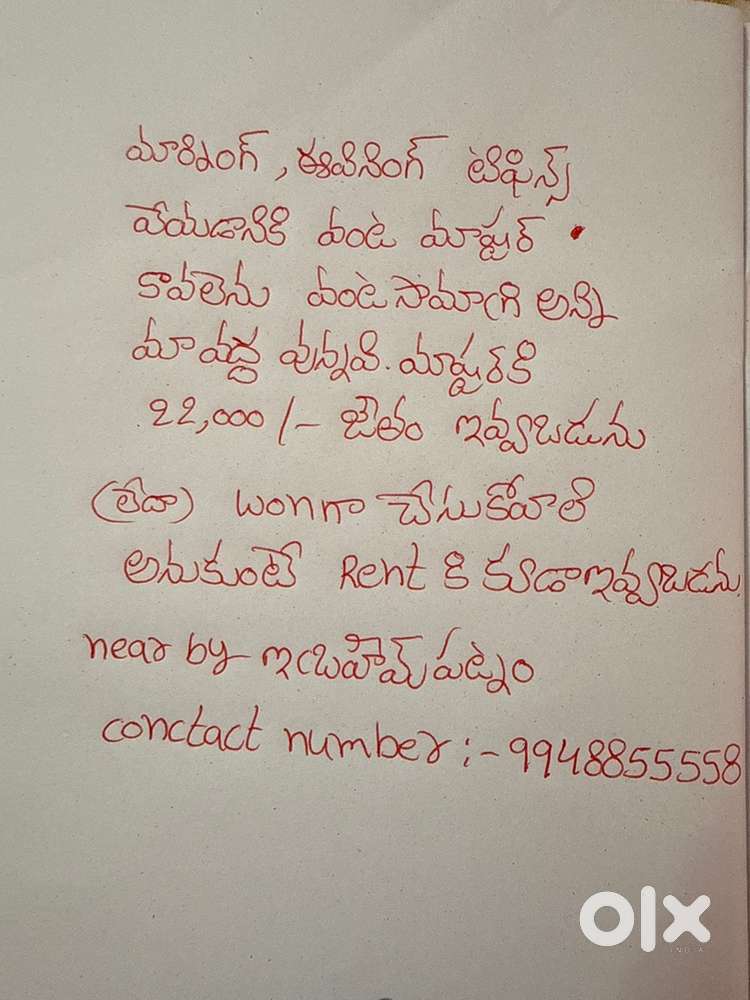 మార్నింగ్, ఈవినింగ్ టిఫిన్స్
వేయడానికి వంట మాష్టర్.
కావలెను వంట సామాగ్రి అన్ని
మా వద్ద వున్నవి. మాష్టర్‌కి
22,000/- జీతం ఇవ్వబడును
(లేదా) wonగా చేసుకోవాలి
అనుకుంటే Rent కి కూడా ఇవ్వబడును.
near by ఇబ్రహీమ్ పట్నం
conctact number :- 9948855558
olx
INDIA